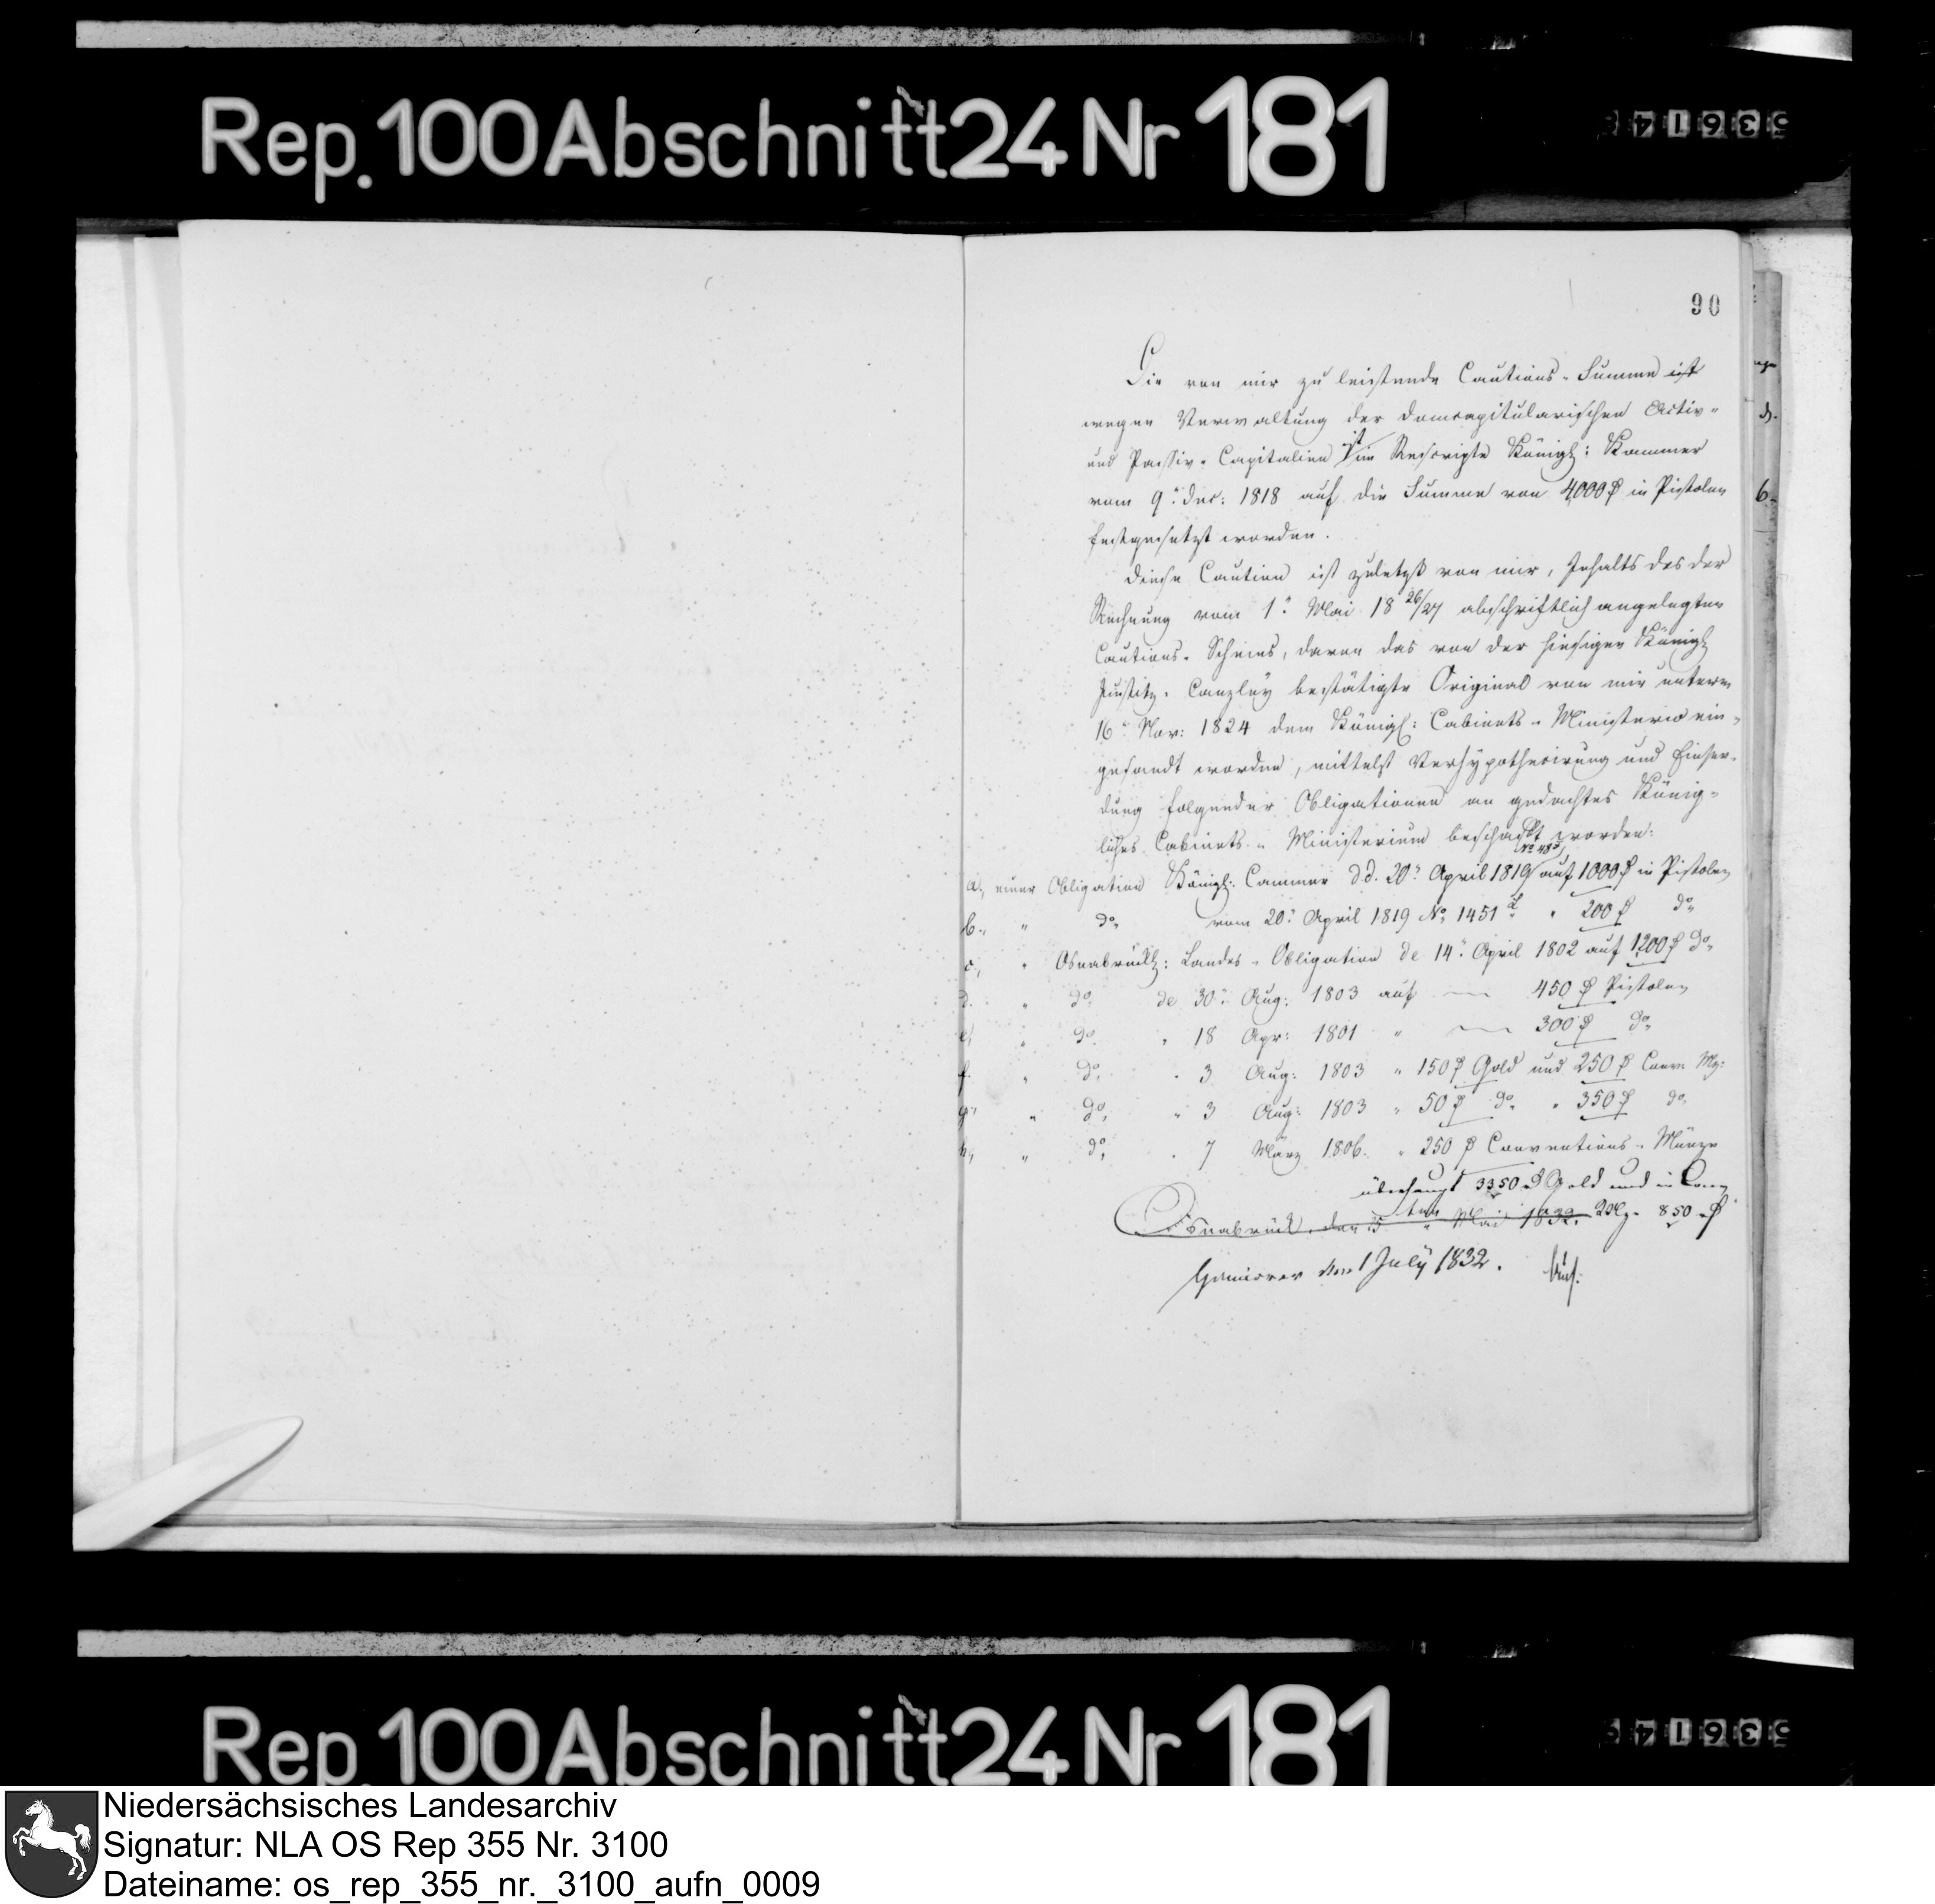 Rep. 100 Abschnitt 24 Nr 181
90
Die von mir zu leistende Cautions-Summe ist
wegen Verwaltung der domcapitularischen Activ-
und Passiv-Capitalien ist im Rescripte Königl: Kammer
vom 9t. Dec: 1818 auf die Summe von 4000 ₰ in Pistolen
festgesetzt worden.
Diese Caution ist zuletzt von mir, Inhalts des der
Rechnung vom 1t. Mai 1826/27 abschriftlich angelegten
Cautions-Scheins, davon das von der hiesigen Königl
Justitz-Canzley bestätigte Original von mir unterm
16t. Nov: 1824 dem Königl: Cabinets-Ministerio ein-
gesandt worden, mittelst Verhypothecirung und Einsen-
dung folgender Obligationen an gedachtes König-
liches Cabinets-Ministerium beschafft worden:
a, einer Obligation Königl: Cammer d.d. 20t. April 1819 auf 1000 ₰ in Pistolen
b., " do, vom 20t. April 1819 No. 1451 " 200 ₰ do,
c, " Osnabrückl: Landes-Obligation de 14t. April 1802 auf 1200 ₰ do,
d. " do. de 30t. Aug: 1803 auf — 450 ₰ Pistolen
e, " do. " 18 Apr: 1801 " — 300 ₰ do,
f. " do, " 3 Aug: 1803 " 150 ₰ Gold und 250 ₰ Conv. Mz:
g, " do, " 3 Aug: 1803 " 50 ₰ do. " 350 ₰ do,
h, " do, " 7 März 1806. " 250 ₰ Conventions-Münze
überhaupt 3350 ₰ Gold und in Conv
Osnabrück, den 5ten Mai 1832. Mz. 850 ₰
Hannover den 1 July 1832.
Rep. 100 Abschnitt 24 Nr 181
Niedersächsisches Landesarchiv
Signatur: NLA OS Rep 355 Nr. 3100
Dateiname: os_rep_355_nr._3100_aufn_0009